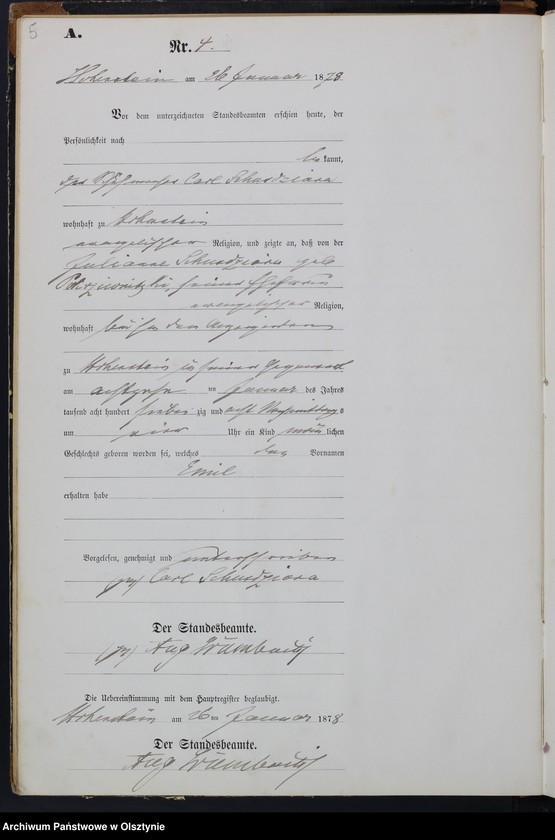 5
A.
Nr. 4.
Hohenstein am 26 Januar 1878
Vor dem unterzeichneten Standesbeamten erschien heute, der
Persönlichkeit nach
be kannt,
der Carl
wohnhaft zu Hohenstein
evangelischer Religion, und zeigte an, daß von der
Julianne geb
seiner Ehefrau
evangelischer Religion,
wohnhaft bei
zu Hohenstein in seiner
am achtzehn ten Januar des Jahres
tausend acht hundert sieben zig und acht Nachmittags
um vier Uhr ein Kind männ lichen
Geschlechts geboren worden sei, welches den Vornamen
Emil
erhalten habe
Vorgelesen, genehmigt und unterschrieben
(gez) Carl
Der Standesbeamte.
(gez) Aug
Die Uebereinstimmung mit dem Hauptregister beglaubigt.
Hohenstein am 26 ten Januar 1878
Der Standesbeamte.
Aug
Archiwum Państwowe w Olsztynie